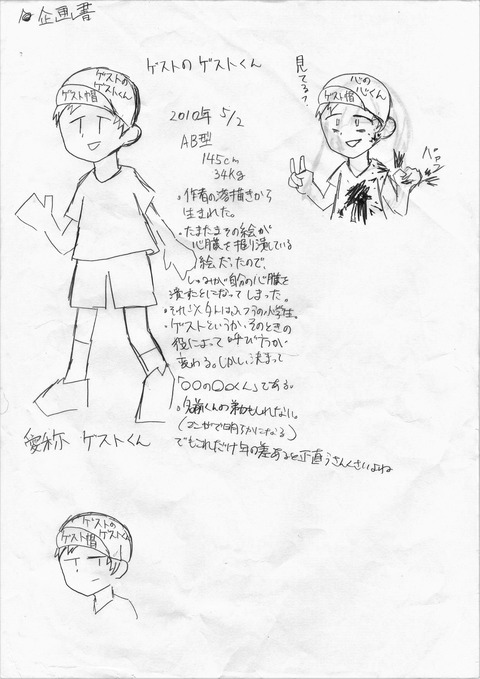 企画書
ゲストの ゲストくん
ゲストの
ゲストくん
ゲスト帽
見てるー?
心の
心くん
ゲスト帽
2010年 5/2
AB型
145cm
34kg
・作者の落描きから
生まれた。
・たまたまその絵が
心臓を握り潰している
絵だったので、
しゅみが自分の心臓を
潰すことになってしまった。
・それ以外はふつうの小学生。
・ゲストというか、そのときの
役によって呼び方が
変わる。しかし、決まって
「〇〇の〇〇くん」である。
・名前くんの弟かもしれない。
(マンガで明らかになる)
でもこれだけ年の差あると正直うさんくさいよね
愛称 ゲストくん
ゲストの
ゲストくん
ゲスト帽